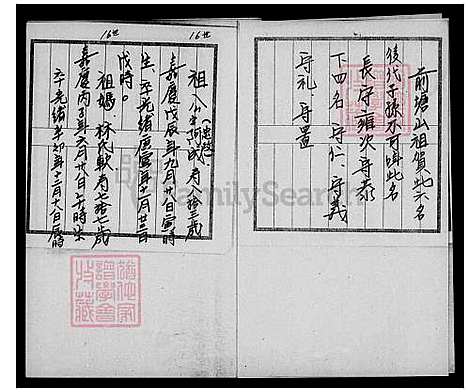 前塘山祖與此不名
後代子孫不可叫此名
長守雍次守泰
下四名守仁守義
守礼守置
16世
16世
祖公字阿成寿拾三歲
嘉慶戊辰年九月廿日寅時
生卒光緒庚寅年十月廿三日
戌時。
祖媽林氏軟寿七拾七歲
嘉慶丙子年六月廿八日午時生
卒光緒辛卯年十二月大日辰時
FamilySearch